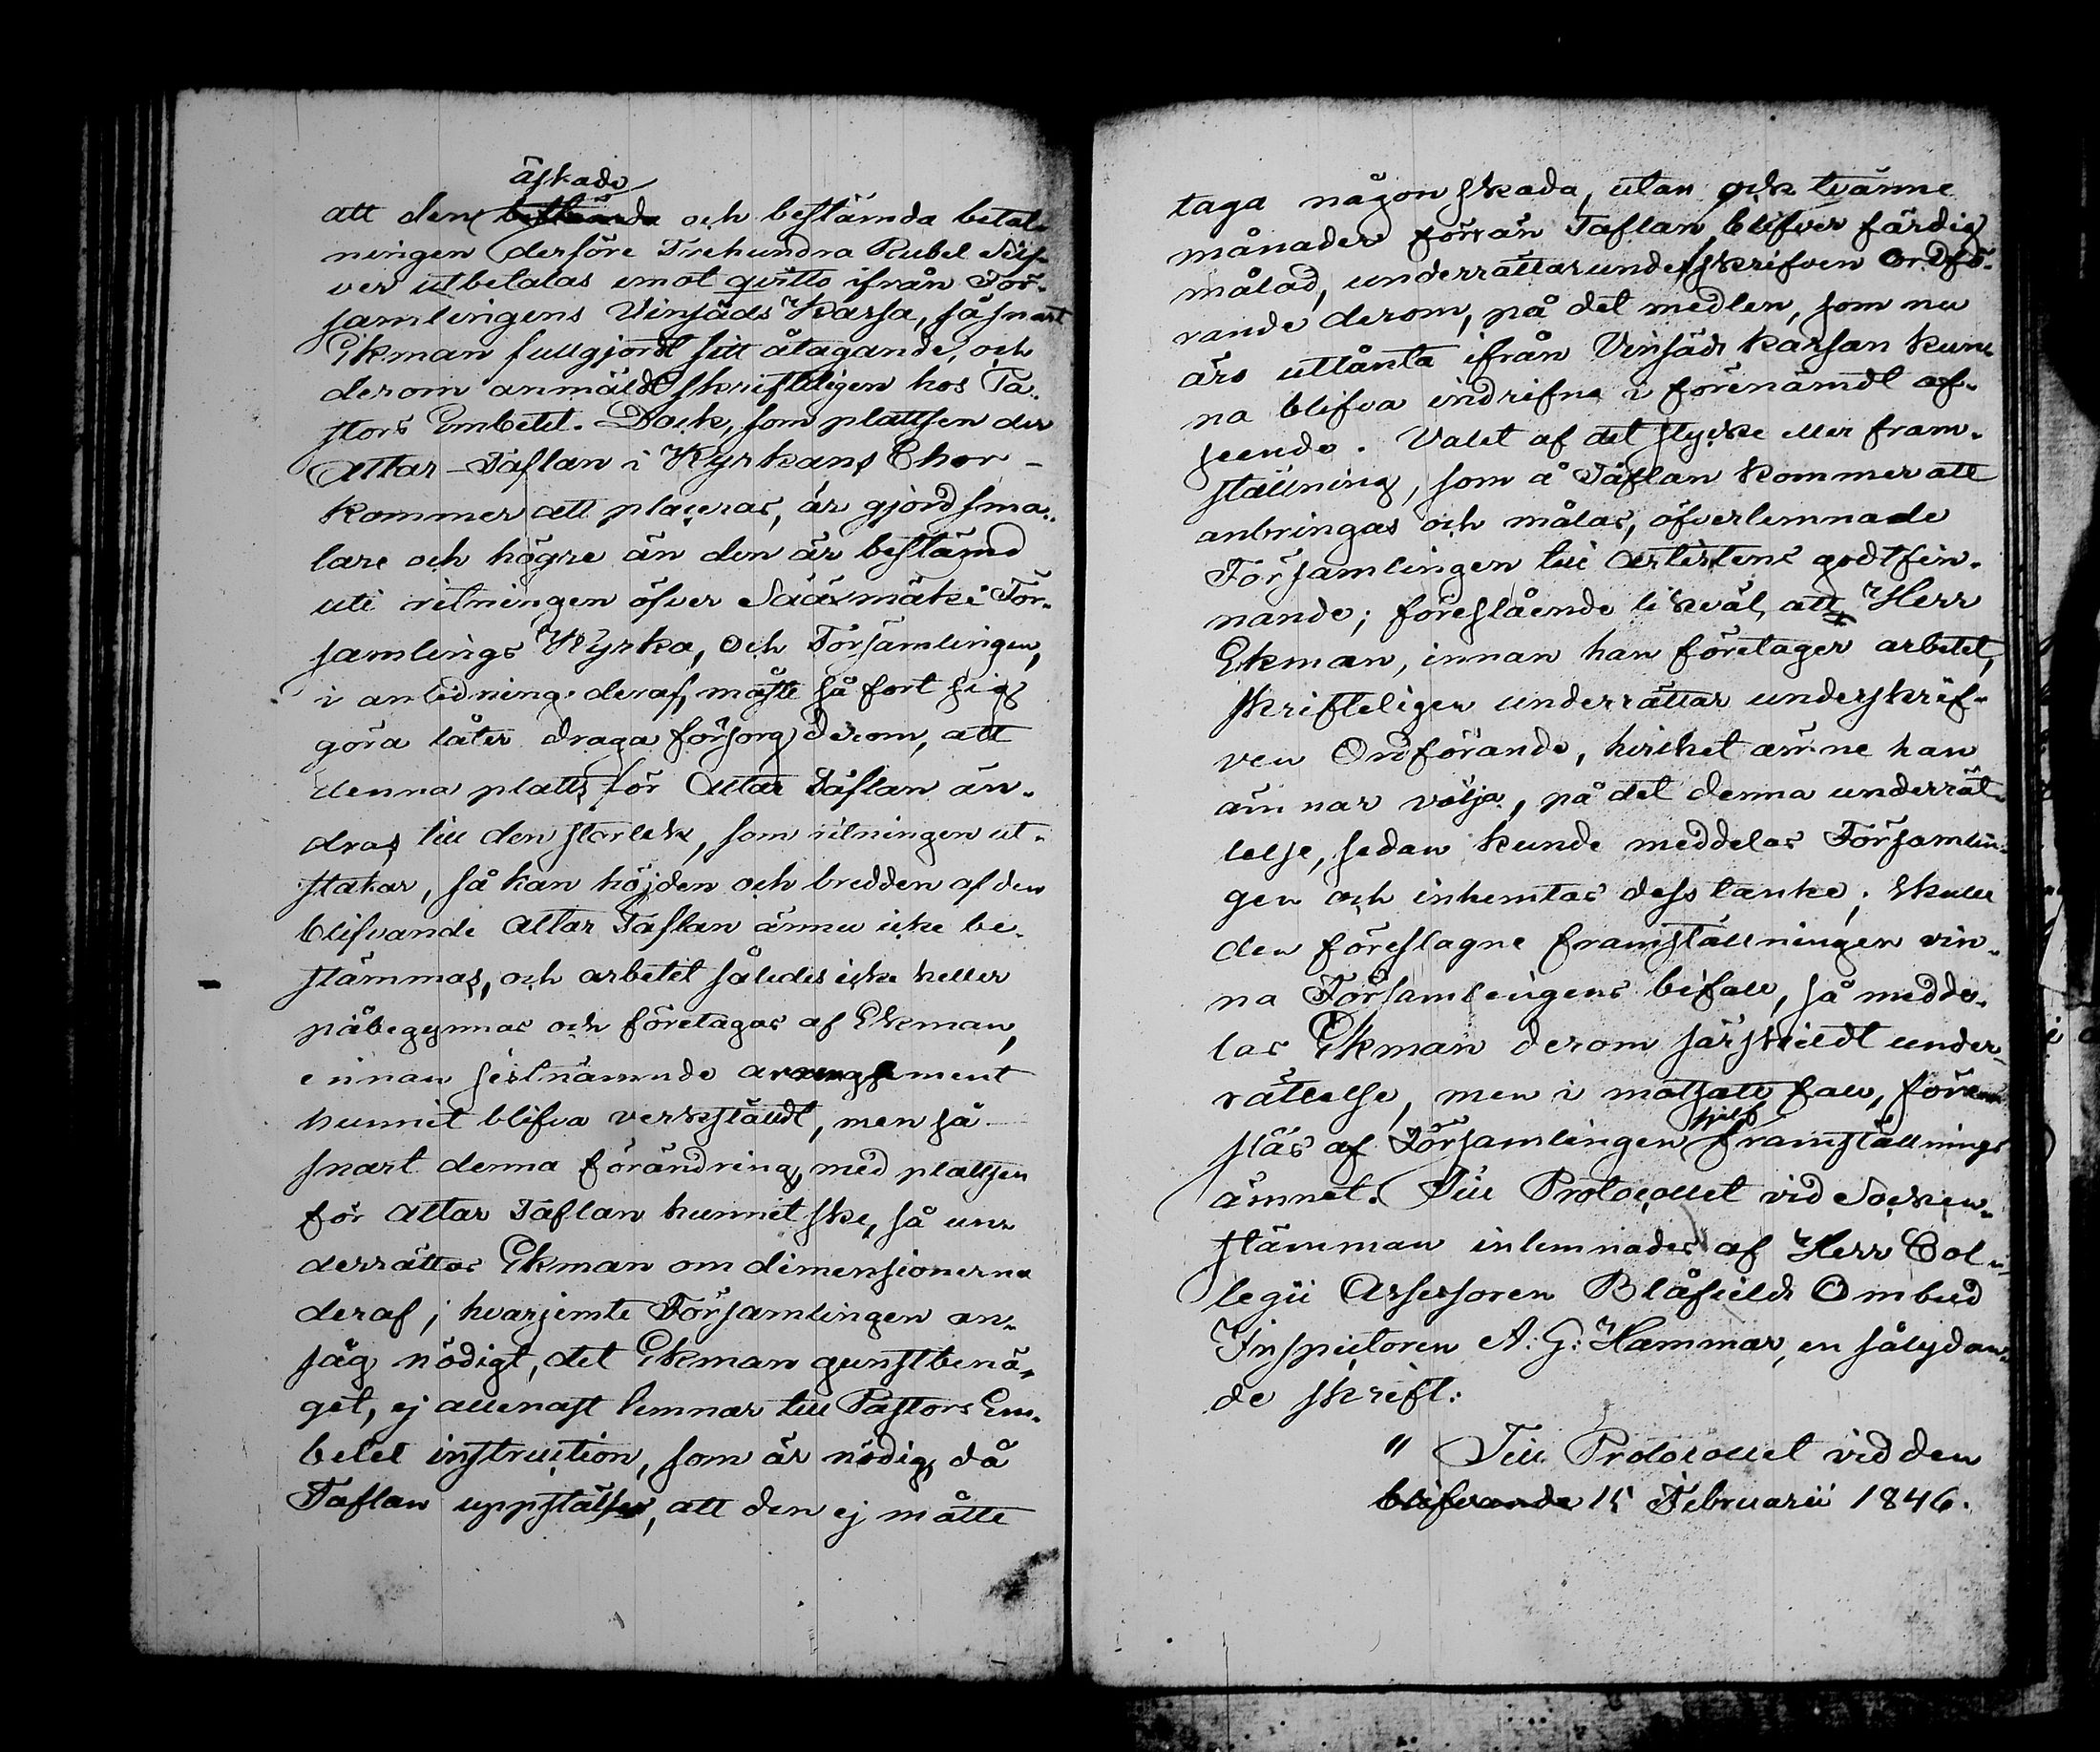 äskade
att den bestämda och bestämda betal-
ningen derföre Trehundra Rubel Silf-
ver utbetalas emot qvitto ifrån För-
samlingens Vinsäds Kassa, så snart
Ekman fullgjordt sitt åtagande, och
derom anmäldt skrifteligen hos Pa-
stors Embetet. Dock, som plattsen der
Altar-Taflan i Kyrkans Chor -
kommer att placeras, är gjord sma-
lare och högre än den är bestämd
uti ritningen öfver Sääxmäki För-
samlings Kyrka, och Församlingen,
i anledning deraf, måste så fort sig
göra låter draga försorg derom, att
denna platts för Altar Taflan än-
dras till den storlek, som ritningen ut-
stakar, så kan höjden och bredden af den
blifvande Altar Taflan ännu icke be-
stämmas, och arbetet således icke heller
påbegynnas och företagas af Ekman,
innan sistnämnde arrangement
hunnit blifva verkställdt, men så
snart denna förändring med plattsen
för Altar Taflan hunnit ske, så un-
derrättas Ekman om dimensionerna
deraf; hvarjemte Församlingen an-
såg nödigt, det Ekman gunstbenä-
get, ej allenast lemnar till Pastors Em-
betet instruction, som är nödig, då
Taflan uppställes, att den ej måtte
taga någon skada, utan ock tvänne
månader förrän Taflan blifver färdig
målad, underrättar underskrifven Ordfö-
rande derom, på det medlen, som nu
äro utlånta ifrån Vinsäds kassan kun-
na blifva indrifna i förenämdt af-
seende. Valet af det stycke eller fram-
ställning, som å Taflan kommer att
anbringas och målas, öfverlemnade
Församlingen till Artistens godtfin-
nande; föreslående likväl, att Herr
Ekman, innan han företager arbetet,
skrifteligen underrättar underskrif-
ven Ordförande, hvilket ämne han
ämnar välja, på det denna underrät-
telse, sedan kunde meddelas Församlin-
gen och inhemtas dess tanke; skulle
den föreslagne framställningen vin-
na Församlingens bifall, så medde-
las Ekman derom särskildt under-
rättelse, men i motsatt fall, före-
sjelf
slås af Församlingen framställnings
ämnet. Till Protocollet vid Socken-
stämman inlemnades af Herr Col-
legii Assessoren Blåfields Ombud
Inspectoren A: G: Hammar, en sålydan-
de skrift:
" Till Protocollet vid den
blifvande 15 Februarii 1846.